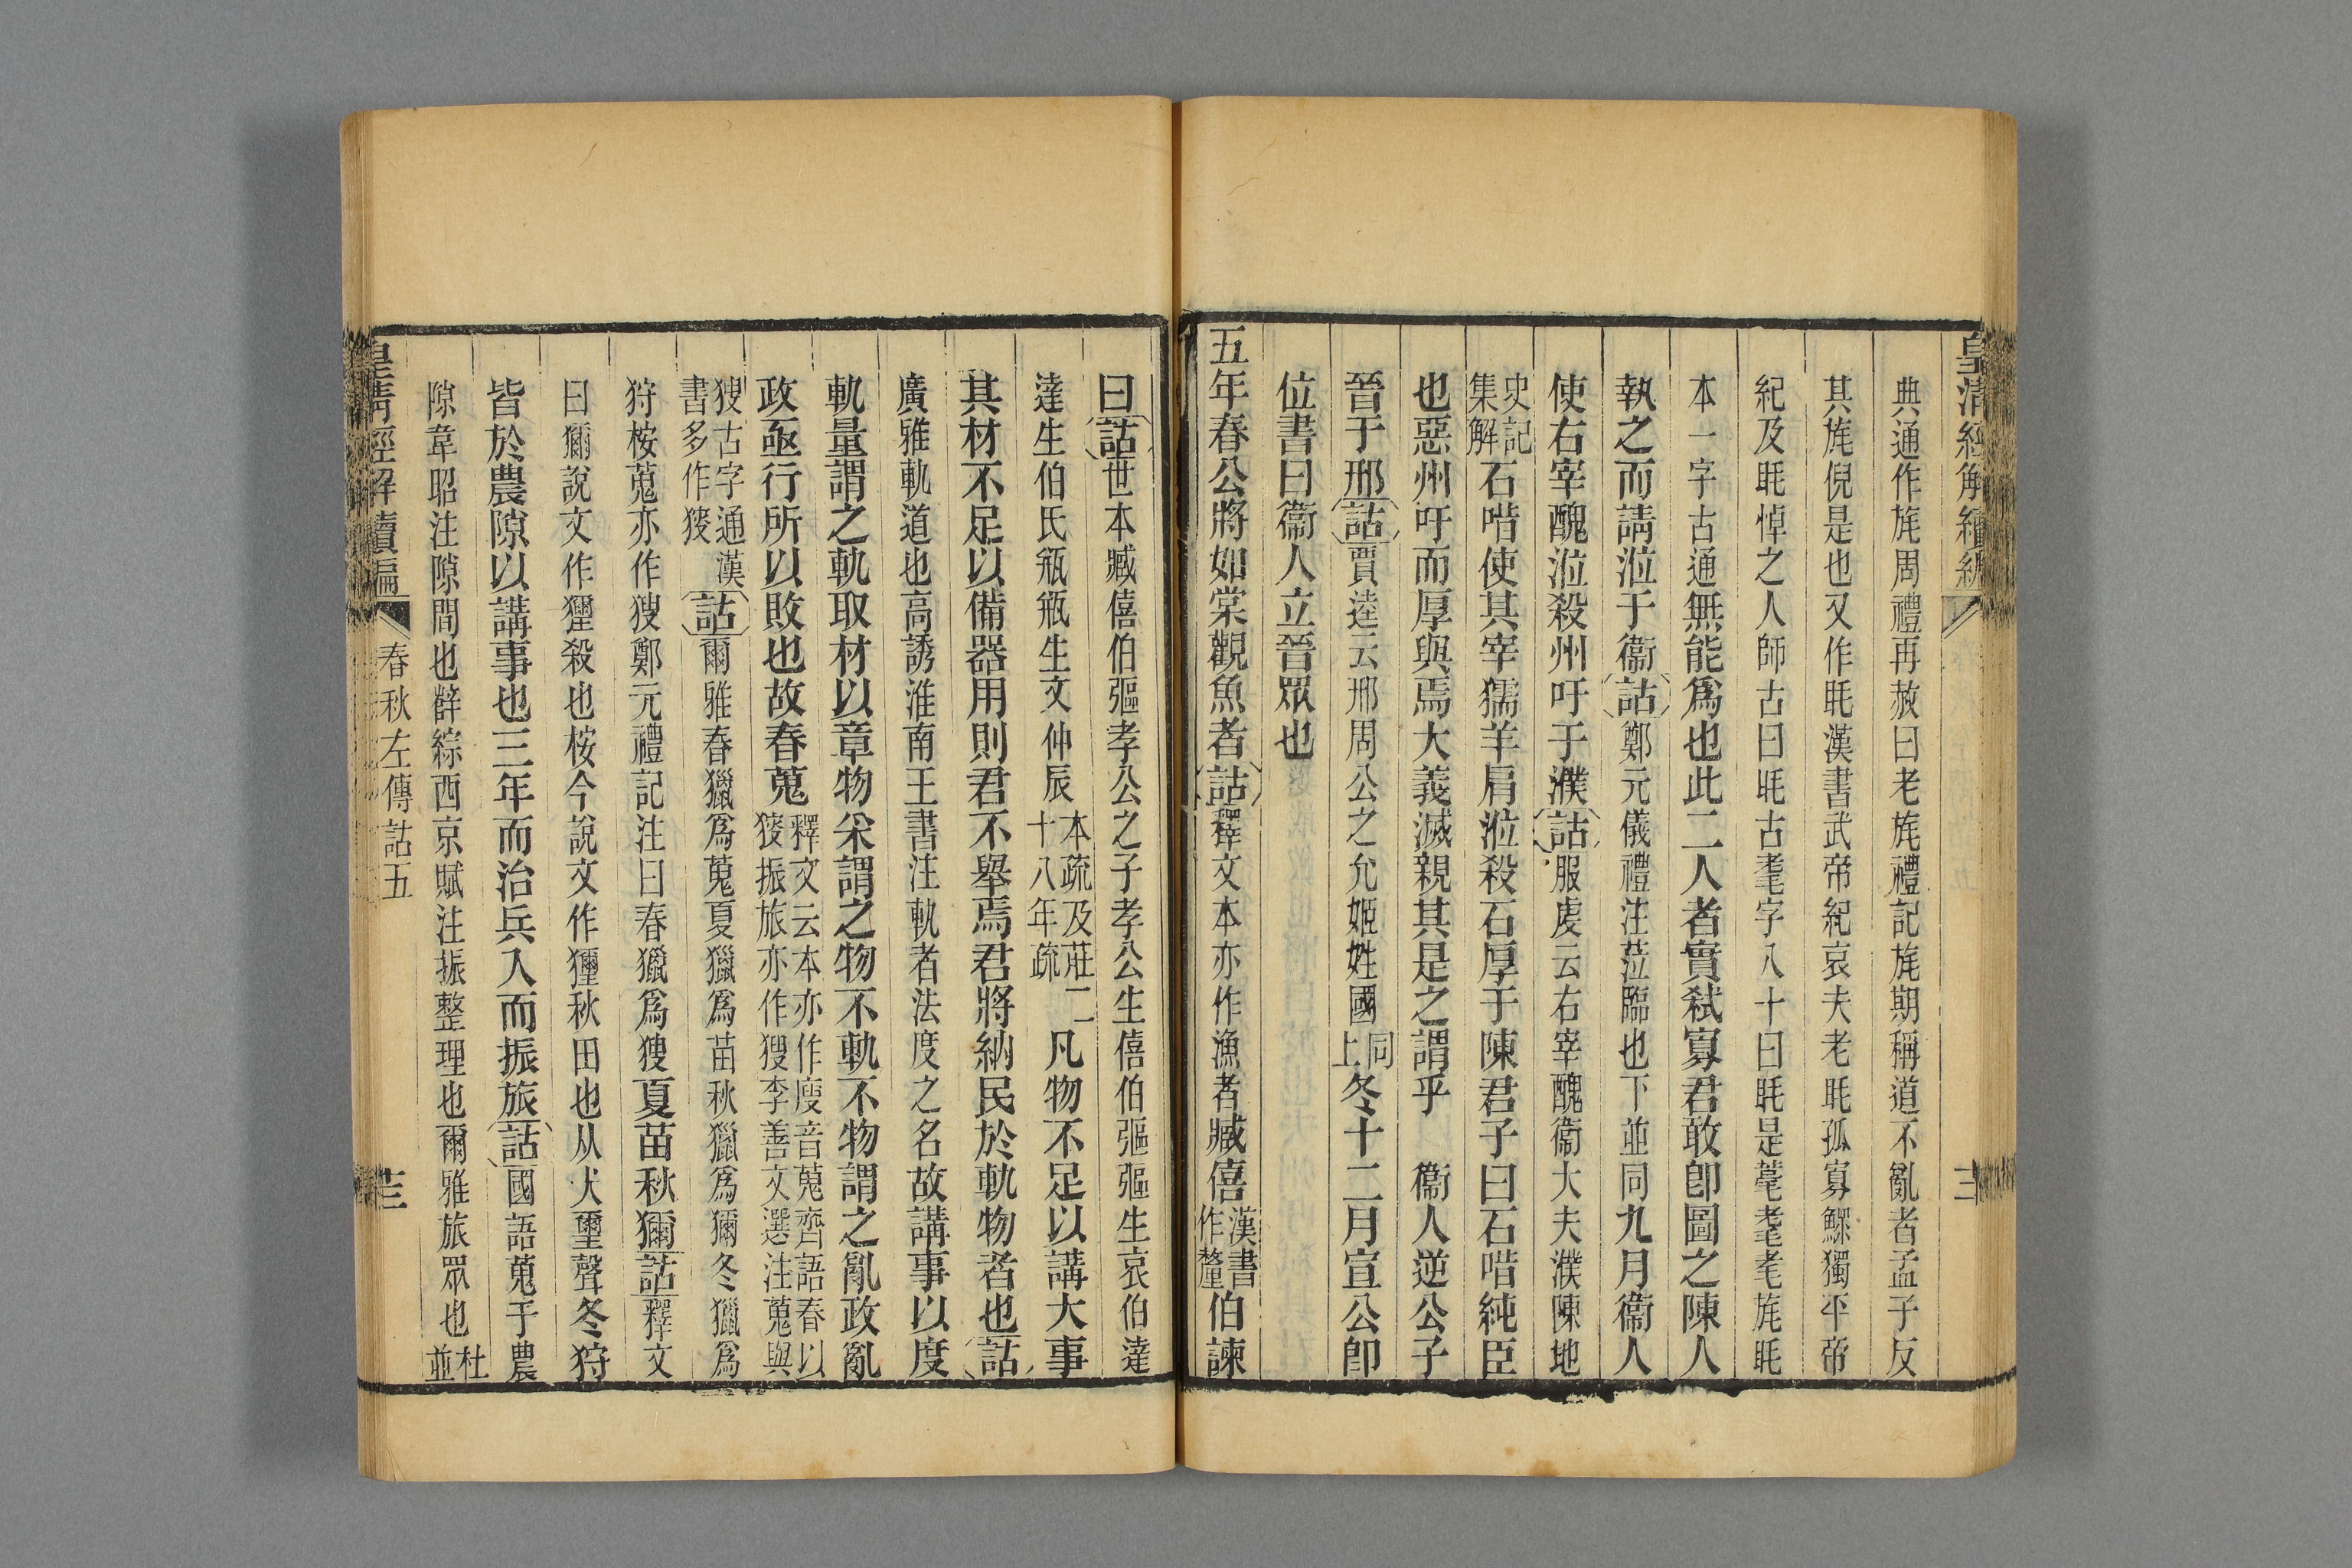 皇清經解續編
典通作旄周禮再赦曰老旄禮記旄期稱道不亂者孟子反
其旄倪是也又作眊漢書武帝紀哀夫老眊孤寡鰥獨平帝
紀及眊悼之人師古曰眊古耄字八十曰眊是薹耄耄旄眊
本一字古通無能爲也此二人者實弑寡君敢卽圖之陳人
執之而請涖于衞詁鄭元儀禮注蒞臨也下並同九月衞人
使右宰醜涖殺州吁于濮詁服虔云右宰醜衞大夫濮陳地
史記集解石喈使其宰獳羊肩涖殺石厚于陳君子曰石喈純臣
也惡州吁而厚與焉大義滅親其是之謂乎 衞人逆公子
晉于邢詁賈逵云邢周公之允姬姓國同上冬十二月宣公卽
位書曰衞人立晉眾也
五年春公將如棠觀魚者詁釋文本亦作漁者臧僖漢書作釐伯諫
曰詁世本臧僖伯彄孝公之子孝公生僖伯彄彄生哀伯達
達生伯氏瓶瓶生文仲辰本疏及莊二十八年疏凡物不足以講大事
其材不足以備器用則君不舉焉君將納民於軌物者也詁
廣雅軌道也高誘淮南王書注軌者法度之名故講事以度
軌量謂之軌取材以章物采謂之物不軌不物謂之亂政亂
政亟行所以敗也故春蒐釋文云本亦作廋音蒐齊語春以獀振旅亦作獀李善文選注蒐與
獀古字通漢書多作獀詁爾雅春獵爲蒐夏獵爲苗秋獵爲獮冬獵爲
狩桉蒐亦作獀鄭元禮記注曰春獵爲獀夏苗秋獮詁釋文
曰獮說文作玃殺也桉今說文作玃秋田也从犬璽聲冬狩
皆於農隙以講事也三年而治兵入而振旅詁國語蒐于農
隙韋昭注隙間也薛綜西京賦注振整理也爾雅旅眾也杜並
皇清經解續編
春秋左傳詁五